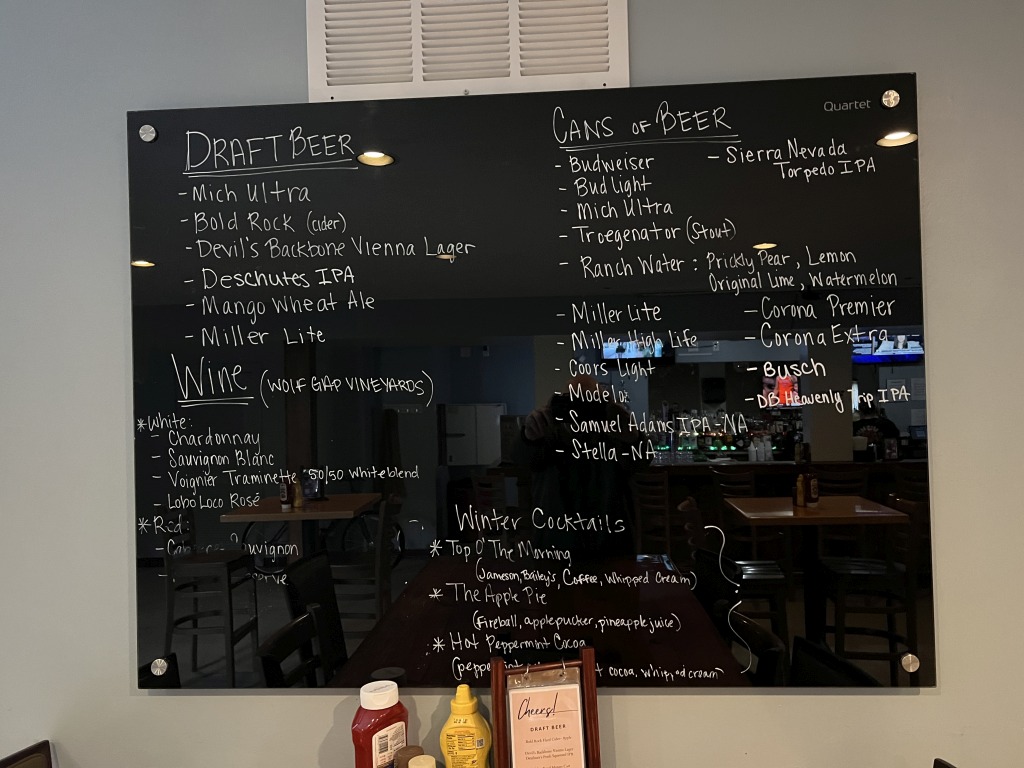 Quartet
DRAFT BEER
- Mich Ultra
- Bold Rock (cider)
- Devil's Backbone Vienna Lager
- Deschutes IPA
- Mango Wheat Ale
- Miller Lite
WINE (WOLF GAP VINEYARDS)
* White:
- Chardonnay
- Sauvignon Blanc
- Voignier Traminette 50/50 White blend
- Lobo Loco Rosé
* Red:
CANS OF BEER
- Budweiser
- Bud Light
- Mich Ultra
- Troegenator (Stout)
- Ranch Water: Prickly Pear, Lemon
Original Lime, Watermelon
- Sierra Nevada
Torpedo IPA
- Miller Lite
- Miller High Life
- Coors Light
- Modelo
- Samuel Adams IPA-NA
- Stella-NA
- Corona Premier
- Corona Extra
- Busch
- DB Heavenly Trip IPA
Winter Cocktails
* Top O' The Morning
(Jameson, Bailey's, Coffee, Whipped Cream)
* The Apple Pie
(Fireball, applepucker, pineapple juice)
* Hot Peppermint Cocoa
cocoa, whipped cream
Cheers!
DRAFT BEER